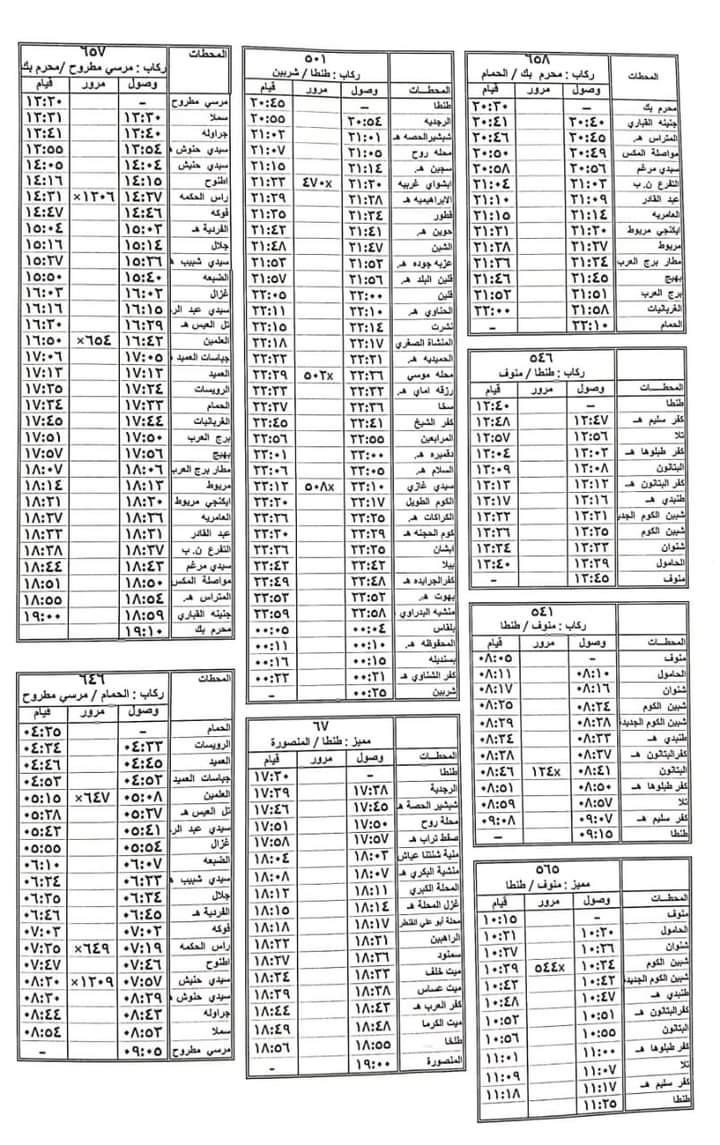 ٦٥٨
المحطات ركاب : محرم بك / الحمام
وصول مرور قيام
محرم بك – ٢٠:٣٠
جنينه القباري ٢٠:٤٠ ٢٠:٤١
المتراس هـ ٢٠:٤٥ ٢٠:٤٦
مواصلة المكس ٢٠:٤٩ ٢٠:٥٠
سيدي مرغم ٢٠:٥٦ ٢٠:٥٨
التفرع ن.ب ٢١:٠٣ ٢١:٠٤
عبد القادر ٢١:٠٩ ٢١:١٠
العامريه ٢١:١٤ ٢١:١٥
ايكنجي مريوط ٢١:٢٠ ٢١:٢١
مريوط ٢١:٢٧ ٢١:٢٨
مطار برج العرب ٢١:٣٤ ٢١:٣٦
بهيج ٢١:٤٥ ٢١:٤٦
برج العرب ٢١:٥١ ٢١:٥٢
الغربانيات ٢١:٥٨ ٢٢:٠٠
الحمام ٢٢:١٠ –
٥٤٦
ركاب : طنطا / منوف
المحطـــات وصول مرور قيام
طنطا – ١٢:٤٠
كفر سليم هـ ١٢:٤٧ ١٢:٤٨
تلا ١٢:٥٦ ١٢:٥٧
كفر طبلوها هـ ١٣:٠٣ ١٣:٠٤
البتانون ١٣:٠٨ ١٣:٠٩
كفر البتانون هـ ١٣:١٢ ١٣:١٣
طنبدي هـ ١٣:١٦ ١٣:١٧
شبين الكوم الجدي ١٣:٢١ ١٣:٢٢
شبين الكوم ١٣:٢٥ ١٣:٢٦
شنوان ١٣:٣٣ ١٣:٣٤
الحامول ١٣:٣٩ ١٣:٤٠
منوف ١٣:٤٥ –
٥٤١
ركاب : منوف / طنطا
المحطـــات وصول مرور قيام
منوف – ٠٨:٠٥
الحامول ٠٨:١٠ ٠٨:١١
شنوان ٠٨:١٦ ٠٨:١٧
شبين الكوم ٠٨:٢٤ ٠٨:٢٥
شبين الكوم الجديدة ٠٨:٢٨ ٠٨:٢٩
طنبدي هـ ٠٨:٣٣ ٠٨:٣٤
كفر البتانون هـ ٠٨:٣٧ ٠٨:٣٨
البتانون ٠٨:٤١ ١٢٤x ٠٨:٤٦
كفر طبلوها هـ ٠٨:٥٠ ٠٨:٥١
تلا ٠٨:٥٧ ٠٨:٥٩
كفر سليم هـ ٠٩:٠٧ ٠٩:٠٨
طنطا ٠٩:١٥ –
٥٦٥
مميز : منوف / طنطا
المحطـــات وصول مرور قيام
منوف – ١٠:١٥
الحامول ١٠:٢٠ ١٠:٢١
شنوان ١٠:٢٦ ١٠:٢٧
شبين الكوم ١٠:٣٤ ٥٤٤x ١٠:٣٩
شبين الكوم الجديدة ١٠:٤٢ ١٠:٤٣
طنبدي هـ ١٠:٤٧ ١٠:٤٨
كفر البتانون هـ ١٠:٥١ ١٠:٥٢
البتانون ١٠:٥٥ ١٠:٥٦
كفر طبلوها هـ ١١:٠٠ ١١:٠١
تلا ١١:٠٧ ١١:٠٩
كفر سليم هـ ١١:١٧ ١١:١٨
طنطا ١١:٢٥
٥٠١
ركاب : طنطا / شربين
المحطـــات وصول مرور قيام
طنطا – ٢٠:٤٥
الرجديه ٢٠:٥٤ ٢٠:٥٥
شبشير الحصه هـ ٢١:٠١ ٢١:٠٢
محله روح ٢١:٠٥ ٢١:٠٧
سجين هـ ٢١:١٤ ٢١:١٥
ابشواي غربيه ٢١:٢٠ ٤٧٠x ٢١:٢٣
الابراهيميه هـ ٢١:٢٨ ٢١:٢٩
قطور ٢١:٣٤ ٢١:٣٥
حوين هـ ٢١:٤١ ٢١:٤٢
الشين ٢١:٤٧ ٢١:٤٨
عزبه جوده هـ ٢١:٥٢ ٢١:٥٣
قلين البلد هـ ٢١:٥٦ ٢١:٥٧
قلين ٢٢:٠٠ ٢٢:٠٥
الحناوي هـ ٢٢:١٠ ٢٢:١١
نشرت ٢٢:١٤ ٢٢:١٥
المنشاة الصغري ٢٢:١٧ ٢٢:١٨
الحميديه هـ ٢٢:٢١ ٢٢:٢٢
محله موسي ٢٢:٢٦ ٥٠٢x ٢٢:٢٩
رزقه اماي هـ ٢٢:٣٢ ٢٢:٣٣
سخا ٢٢:٣٦ ٢٢:٣٧
كفر الشيخ ٢٢:٤١ ٢٢:٤٥
المرابعين ٢٢:٥٥ ٢٢:٥٦
دقميره هـ ٢٣:٠٠ ٢٣:٠١
السلام هـ ٢٣:٠٥ ٢٣:٠٦
سيدي غازي ٢٣:١٠ ٥٠٨x ٢٣:١٢
الكوم الطويل ٢٣:١٧ ٢٣:٢٠
الكراكات هـ ٢٣:٢٥ ٢٣:٢٦
كوم الحجنه هـ ٢٣:٢٩ ٢٣:٣٠
ابشان ٢٣:٣٥ ٢٣:٣٦
بيلا ٢٣:٤٢ ٢٣:٤٣
كفر الجرايده هـ ٢٣:٤٨ ٢٣:٤٩
بهوت هـ ٢٣:٥٢ ٢٣:٥٣
منشيه البدراوي ٢٣:٥٨ ٢٣:٥٩
بلقاس ٠٠:٠٤ ٠٠:٠٥
المحفوظه هـ ٠٠:١٠ ٠٠:١١
بسنديله ٠٠:١٥ ٠٠:١٦
كفر الشناوي هـ ٠٠:٢١ ٠٠:٢٢
شربين ٠٠:٢٥ –
٦٧
مميز : طنطا / المنصورة
المحطـــات وصول مرور قيام
طنطا – ١٧:٣٠
الرجدية ١٧:٣٨ ١٧:٣٩
شبشير الحصة هـ ١٧:٤٥ ١٧:٤٦
محلة روح ١٧:٥٠ ١٧:٥١
صفط تراب هـ ١٧:٥٧ ١٧:٥٨
منية شنتنا عياش ١٨:٠٣ ١٨:٠٤
منشية البكري هـ ١٨:٠٧ ١٨:٠٨
المحلة الكبري ١٨:١١ ١٨:١٢
غزل المحلة هـ ١٨:١٤ ١٨:١٥
محلة أبو علي القنطر ١٨:١٧ ١٨:١٨
الراهبين ١٨:٢١ ١٨:٢٢
سمنود ١٨:٢٦ ١٨:٢٧
ميت خلف ١٨:٣٣ ١٨:٣٤
ميت عساس ١٨:٣٨ ١٨:٣٩
كفر العرب هـ ١٨:٤٣ ١٨:٤٤
ميت الكرما ١٨:٤٨ ١٨:٤٩
طلخا ١٨:٥٥ ١٨:٥٦
المنصورة ١٩:٠٠ –
٦٥٧
المحطات ركاب : مرسي مطروح /محرم بك
وصول مرور قيام
مرسي مطروح – ١٣:٢٠
سملا ١٣:٣٠ ١٣:٣١
جراوله ١٣:٤٠ ١٣:٤١
سيدي حنوش ه ١٣:٥٤ ١٣:٥٥
سيدي حنيش ١٤:٠٤ ١٤:٠٥
اطنوح ١٤:١٥ ١٤:١٦
راس الحكمه ١٤:٢٧ ١٣٠٦x ١٤:٣١
فوكه ١٤:٤٦ ١٤:٤٧
الفردية هـ ١٥:٠٣ ١٥:٠٤
جلال ١٥:١٤ ١٥:١٦
سيدي شبيب ه ١٥:٢٦ ١٥:٢٧
الضبعه ١٥:٤٠ ١٥:٥٠
غزال ١٦:٠٢ ١٦:٠٣
سيدي عبد الر ١٦:١٥ ١٦:١٦
تل العيس هـ ١٦:٢٩ ١٦:٣٠
العلمين ١٦:٤٢ ٦٥٤x ١٦:٥٠
جباسات العميد ١٧:٠٥ ١٧:٠٦
العميد ١٧:١٢ ١٧:١٣
الرويسات ١٧:٢٤ ١٧:٢٥
الحمام ١٧:٣٣ ١٧:٣٤
الغربانيات ١٧:٤٤ ١٧:٤٥
برج العرب ١٧:٥٠ ١٧:٥١
بهيج ١٧:٥٦ ١٧:٥٧
مطار برج العرب ١٨:٠٦ ١٨:٠٧
مريوط ١٨:١٣ ١٨:١٤
ايكنجي مريوط ١٨:٢٠ ١٨:٢١
العامريه ١٨:٢٦ ١٨:٢٧
عبد القادر ١٨:٣١ ١٨:٣٢
التفرع ن.ب ١٨:٣٧ ١٨:٣٨
سيدي مرغم ١٨:٤٣ ١٨:٤٤
مواصلة المكس ١٨:٥٠ ١٨:٥١
المتراس هـ ١٨:٥٤ ١٨:٥٥
جنينه القباري ١٨:٥٩ ١٩:٠٠
محرم بك ١٩:١٠
٦٤٦
المحطات ركاب : الحمام / مرسي مطروح
وصول مرور قيام
الحمام – ٠٤:٢٥
الرويسات ٠٤:٣٣ ٠٤:٣٤
العميد ٠٤:٤٥ ٠٤:٤٦
جباسات العميد ٠٤:٥٢ ٠٤:٥٣
العلمين ٠٥:٠٨ ٦٤٧x ٠٥:١٥
تل العيس هـ ٠٥:٢٧ ٠٥:٢٨
سيدي عبد الر ٠٥:٤١ ٠٥:٤٢
غزال ٠٥:٥٤ ٠٥:٥٥
الضبعه ٠٦:٠٧ ٠٦:١٠
سيدي شبيب ه ٠٦:٢٣ ٠٦:٢٤
جلال ٠٦:٣٤ ٠٦:٣٥
الفردية هـ ٠٦:٤٥ ٠٦:٤٦
فوكه ٠٧:٠٢ ٠٧:٠٣
راس الحكمه ٠٧:١٩ ٦٤٩x ٠٧:٣٥
اطنوح ٠٧:٤٦ ٠٧:٤٧
سيدي حنيش ٠٧:٥٧ ١٣٠٩x ٠٨:٢٠
سيدي حنوش ه ٠٨:٢٩ ٠٨:٣٠
جراوله ٠٨:٤٣ ٠٨:٤٤
سملا ٠٨:٥٣ ٠٨:٥٤
مرسي مطروح ٠٩:٠٥ –